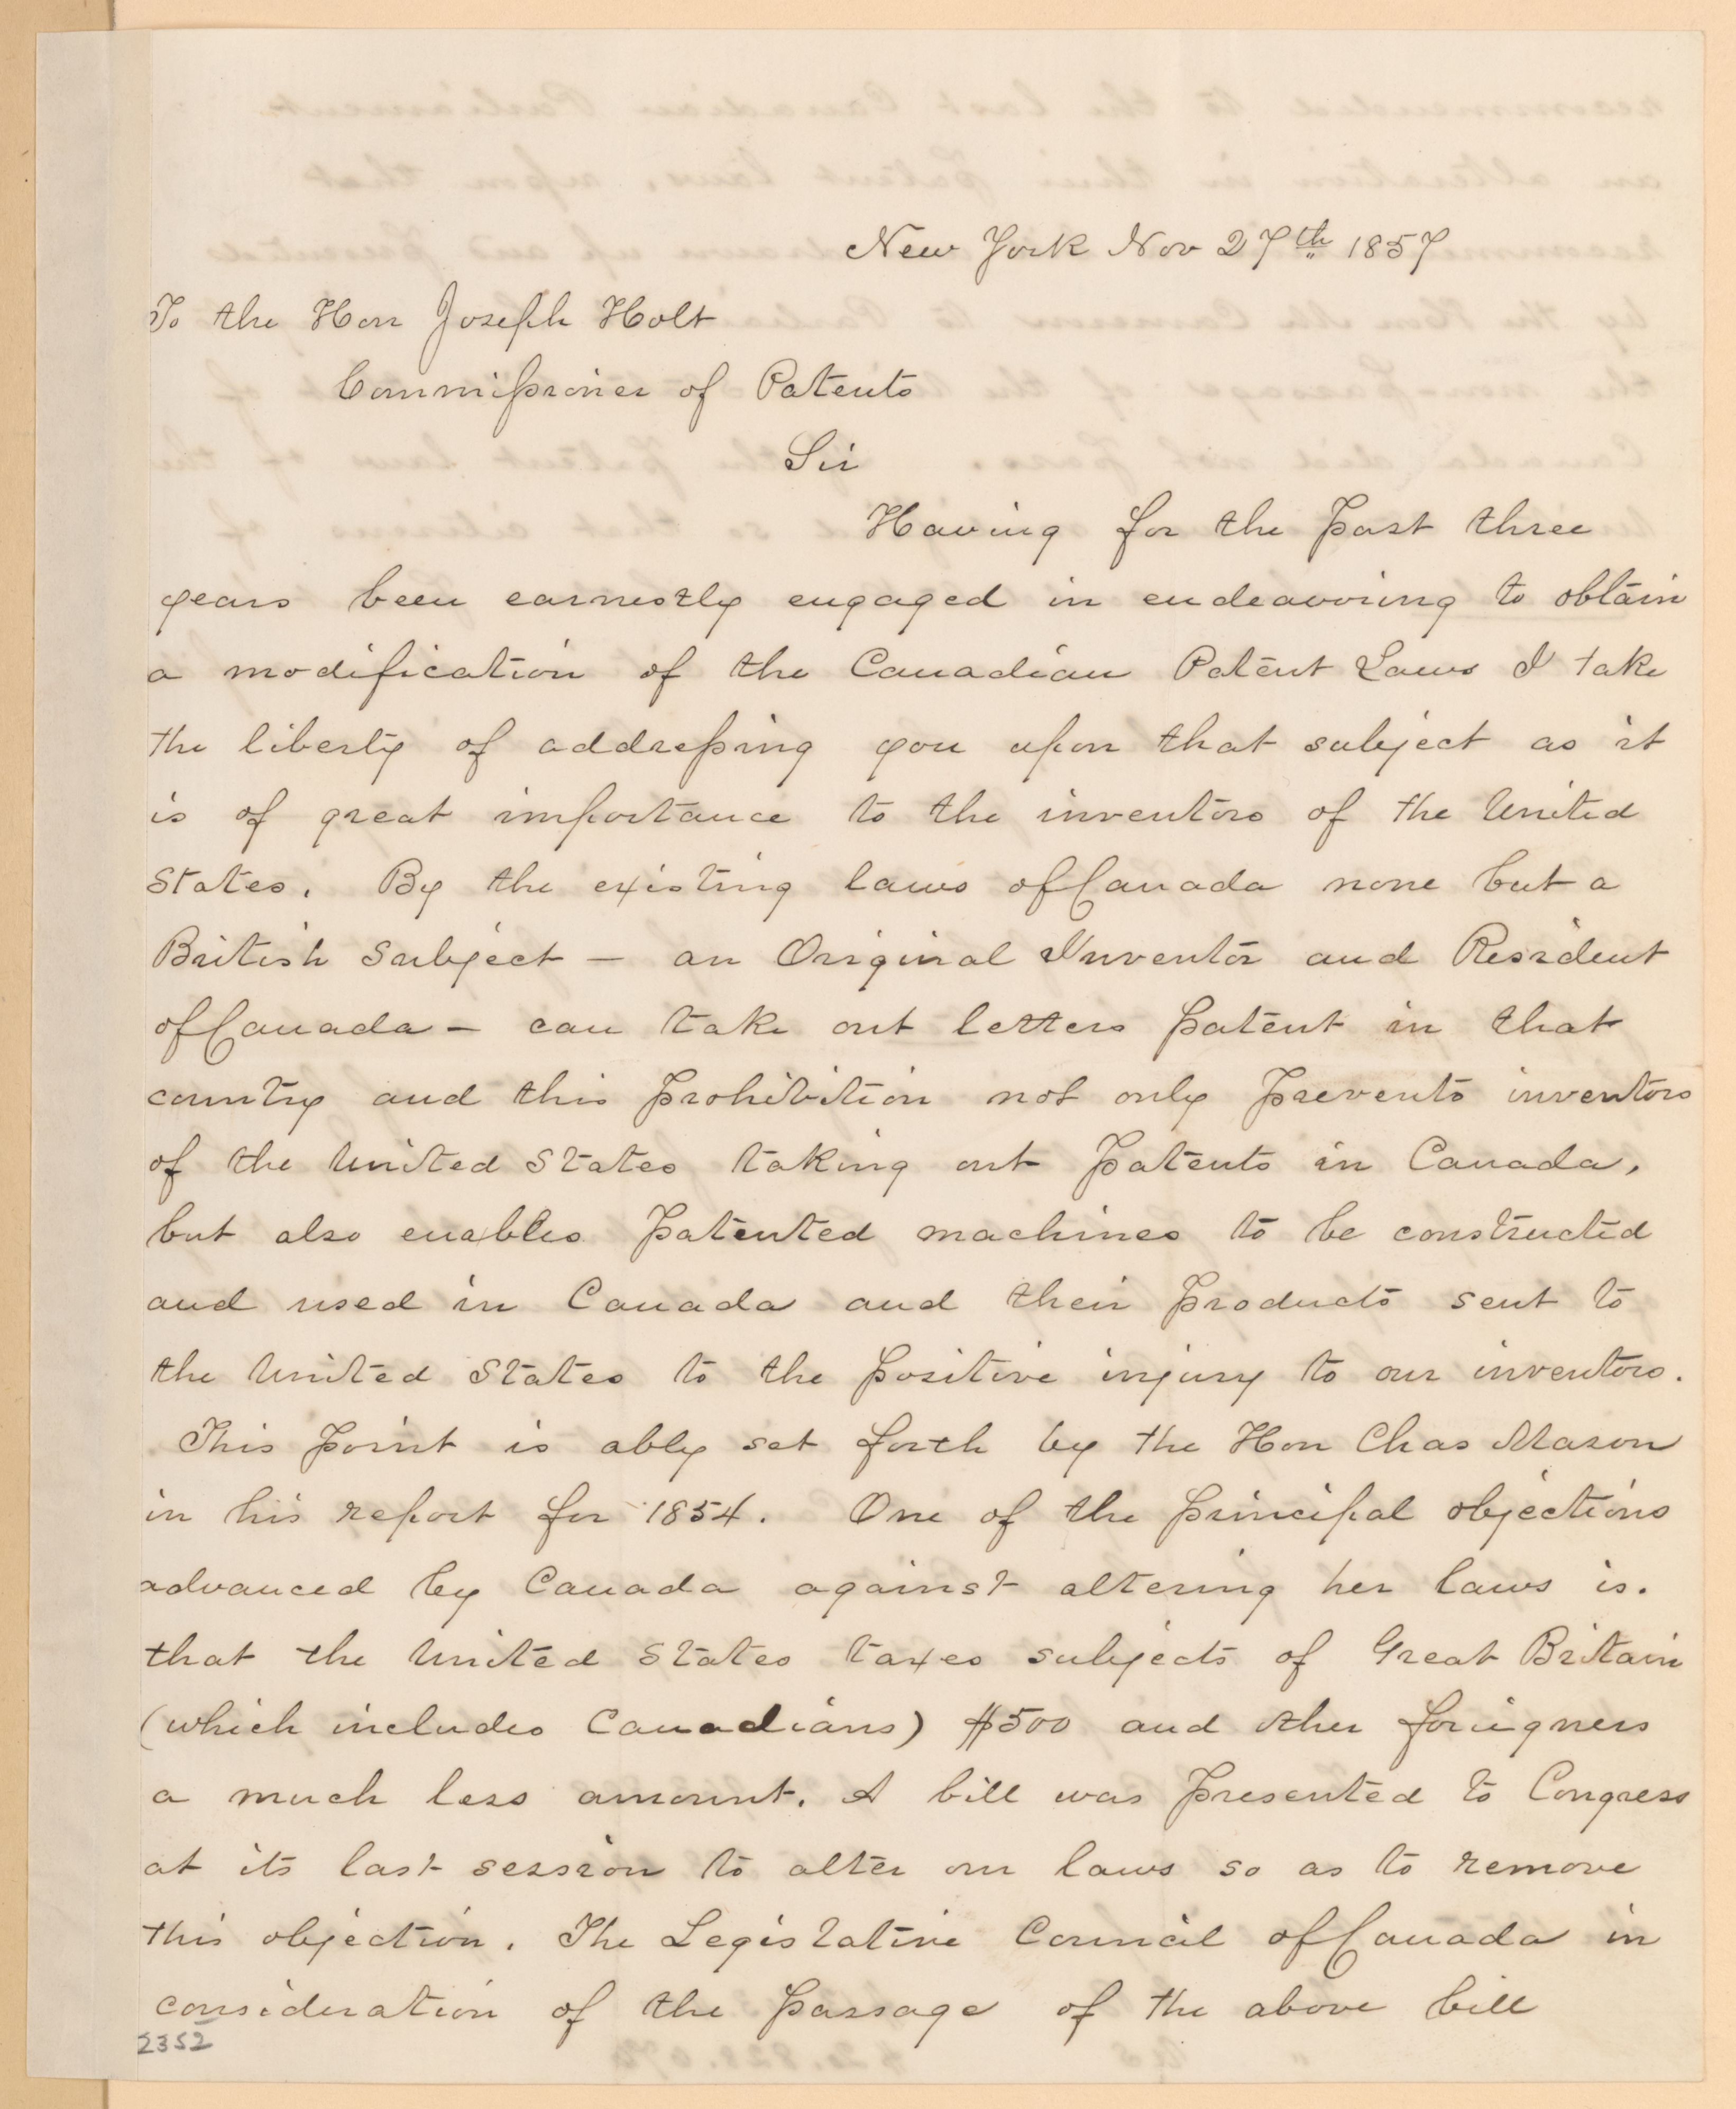 New York Nov 27th 1857
To the Hon Joseph Holt
Commissioner of Patents
Sir
Having for the past three
years been earnestly engaged in endeavoring to obtain
a modification of the Canadian Patent Laws I take
the liberty of addressing you upon that subject as it
is of great importance to the inventors of the United
States. By the existing laws of Canada none but a
British Subject — an Original Inventor and Resident
of Canada — can take out letters patent in that
country and this prohibition not only prevents inventors
of the United States taking out patents in Canada,
but also enables patented machines to be constructed
and used in Canada and their products sent to
the United States to the positive injury to our inventors.
This point is ably set forth by the Hon Chas Mason
in his report for 1854. One of the principal objections
advanced by Canada against altering her laws is.
that the United States taxes subjects of Great Britain
(which includes Canadians) $500 and other foriegners
a much less amount. A bill was presented to Congress
at its last session to alter our laws so as to remove
this objection. The Legislative Council of Canada in
consideration of the passage of the above bill
2352